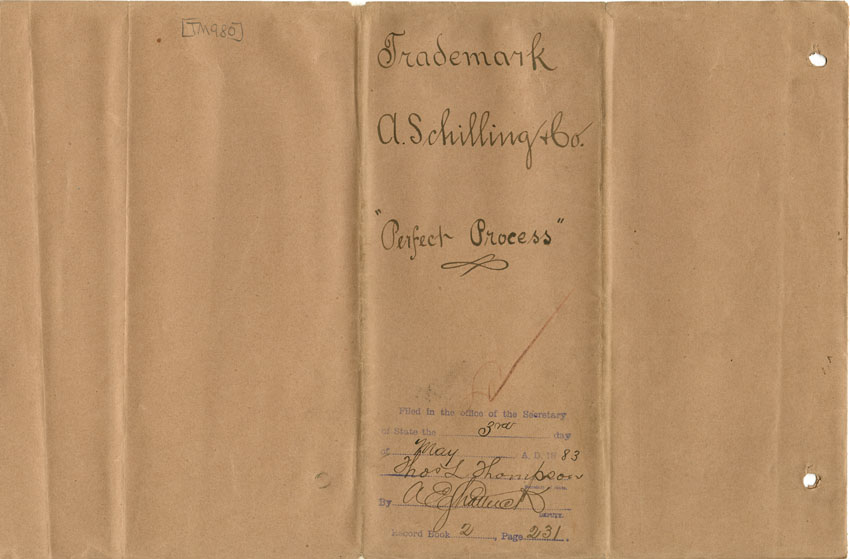 [TM980]
Trademark
A. Schilling & Co.
"Perfect Process"
Filed in the office of the Secretary
of State the 3rd day
of May A. D. 18 83
Thos L Thompson
By
DEPUTY.
Record Book 2, Page 231.